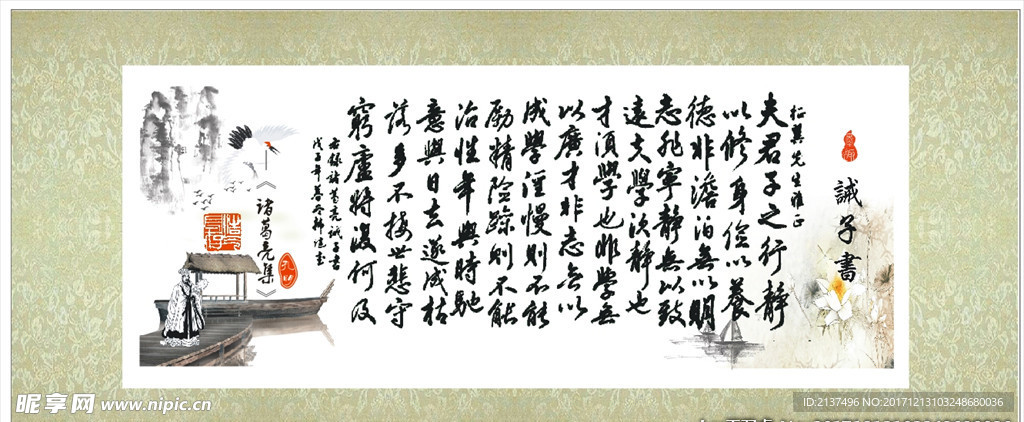 誡子書
先生雅正
夫君子之行靜
以修身儉以養
德非澹泊無以明
志非寧靜無以致
遠夫學須靜也
才須學也非學無
以廣才非志無以
成學淫慢則不能
勵精險躁則不能
治性年與時馳
意與日去遂成枯
落多不接世悲守
窮廬將復何及
右錄諸葛亮誡子書
戊子年暮冬
《諸葛亮集》
昵享网 www.nipic.cn
ID:2137496 NO:20171213103248680036